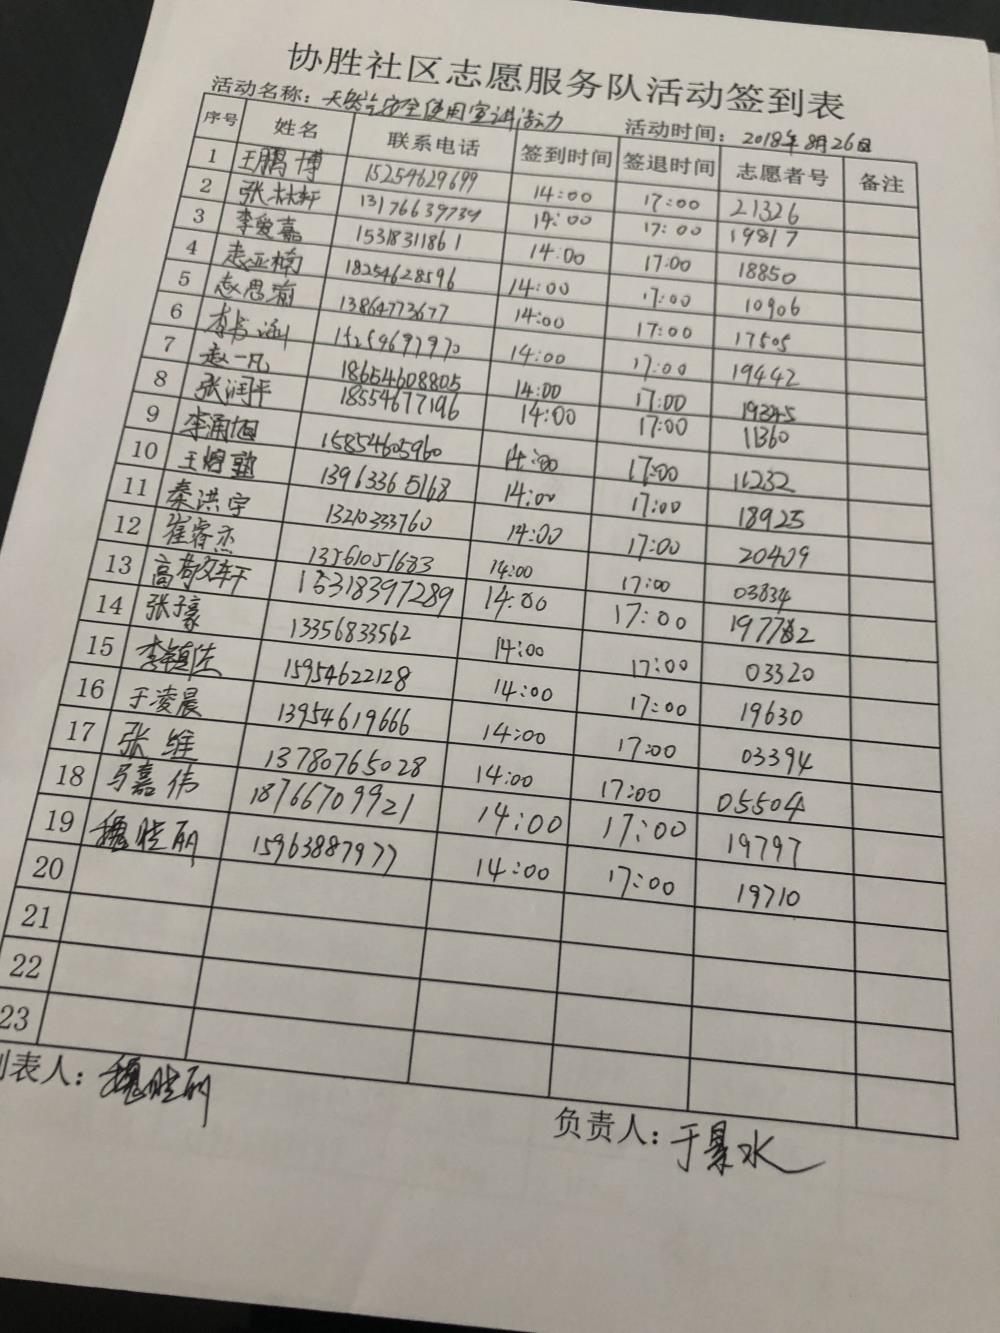 协胜社区志愿服务队活动签到表
活动名称：天然气安全使用宣讲活动 活动时间：2018年8月26日
序号 姓名 联系电话 签到时间 签退时间 志愿者号 备注
1 王鹏博 15254629699 14:00 17:00 21326
2 张林轩 13176639739 14:00 17:00 19817
3 李爱嘉 15318311861 14:00 17:00 18850
4 赵亚楠 18254628596 14:00 17:00 10906
5 赵思瑜 13864773677 14:00 17:00 17505
6 李书涵 15259697970 14:00 17:00 19442
7 赵一凡 18654608805 14:00 17:00 19345
8 张润平 18554677196 14:00 17:00 11360
9 李涌旭 15854605960 14:00 17:00 11232
10 王熠塾 13963365168 14:00 17:00 18925
11 秦洪宇 13210333760 14:00 17:00 20409
12 崔睿杰 13561051683 14:00 17:00 03834
13 高敬轩 15318397289 14:00 17:00 197782
14 张子豪 13356833562 14:00 17:00 03320
15 李镇 15954622128 14:00 17:00 19630
16 于凌晨 13954619666 14:00 17:00 03394
17 张维 13780765028 14:00 17:00 05504
18 马嘉伟 18766709921 14:00 17:00 19797
19 魏胜丽 15963887977 14:00 17:00 19710
20
21
22
23
制表人：魏胜丽 负责人：于景水